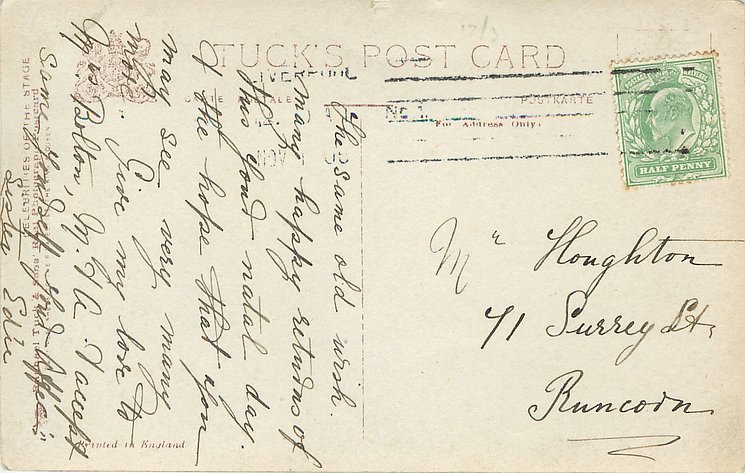 TUCK'S POST CARD
CARTE POSTALE
POSTKARTE
For Address Only.
LIVERPOOL
NO 1
NOV
HALF PENNY
CELEBRITIES OF THE STAGE
The same old wish.
Many happy returns of
this your natal day.
& the hope that you
may see very many
more. Give my love to
Mrs Bolton, M. & A. & accept
same yourself from
Sister Edie
Mr Houghton
71 Surrey St,
Runcorn
Printed in England